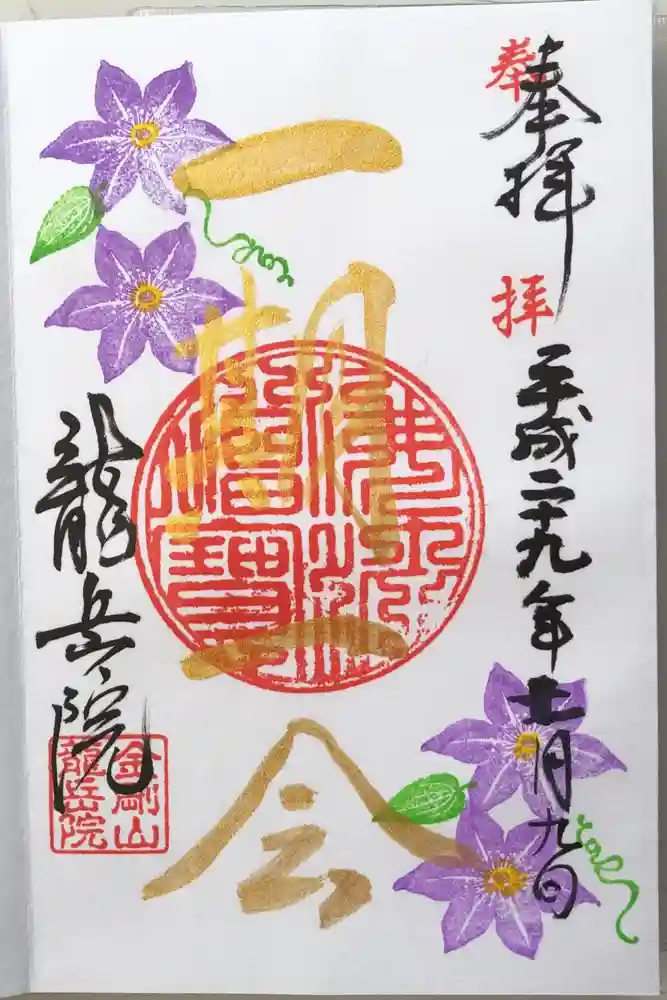 奉拝
奉
拝
平成二十九年十一月九日
一期一会
龍岳院
金剛山
龍岳院